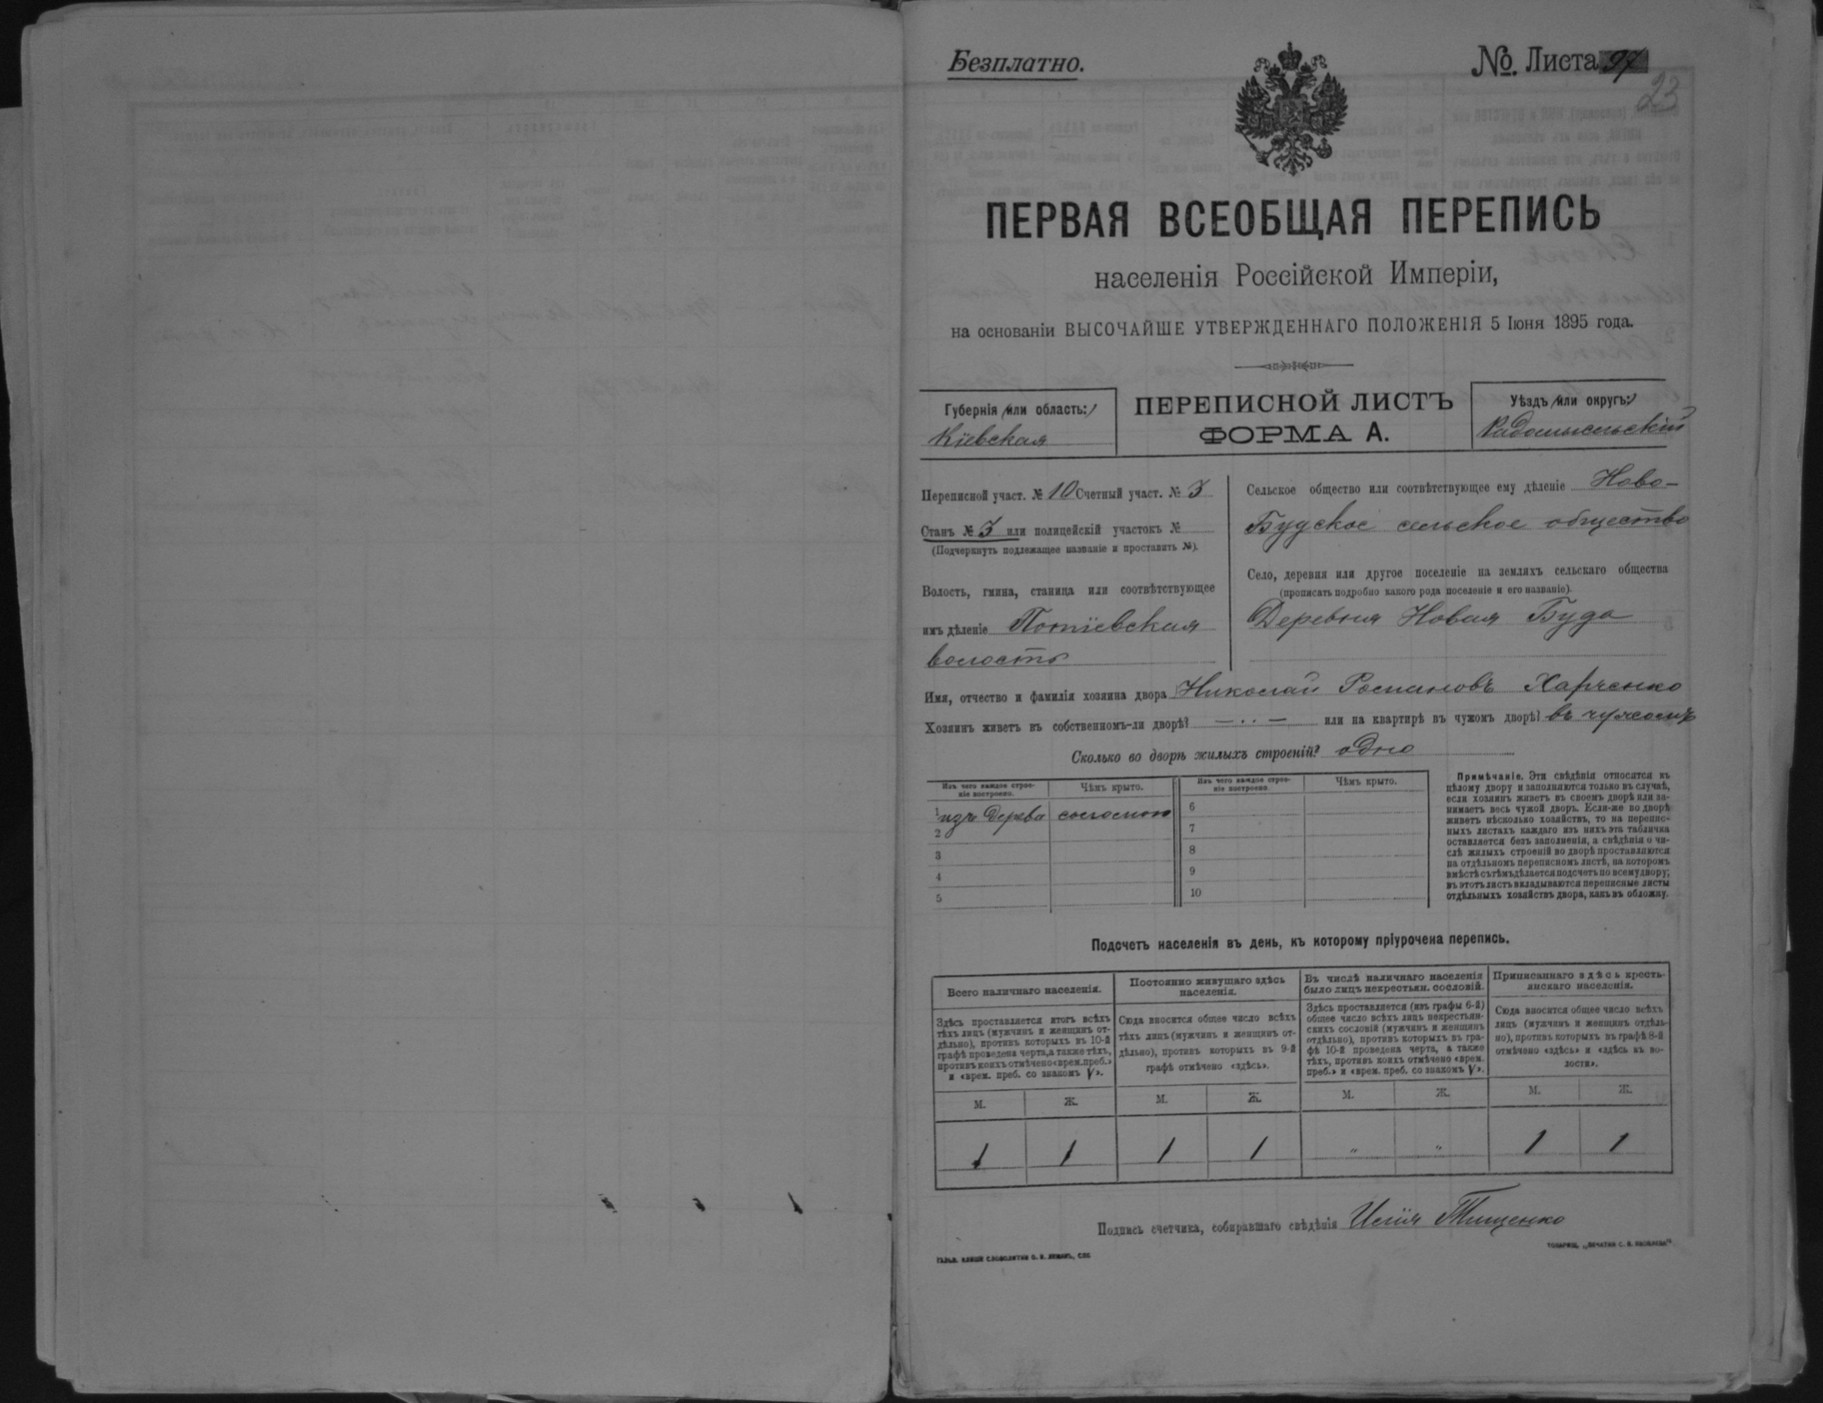 Безплатно.
№. Листа 97
23
ПЕРВАЯ ВСЕОБЩАЯ ПЕРЕПИСЬ
населенія Россійской Имперіи,
на основаніи ВЫСОЧАЙШЕ УТВЕРЖДЕННАГО ПОЛОЖЕНІЯ 5 Іюня 1895 года.
Губернія (или область:)
Кіевская
ПЕРЕПИСНОЙ ЛИСТЪ
ФОРМА А.
Уѣздъ (или округъ:)
Радомысльскій
Переписной участ. № 10 Счетный участ. № 3
Станъ № 3 или полицейскій участокъ №
(Подчеркнуть подлежащее названіе и проставить №).
Волость, гмина, станица или соотвѣтствующее
имъ дѣленіе Потіевская
волость
Сельское общество или соотвѣтствующее ему дѣленіе Ново-
Будское сельское общество
Село, деревня или другое поселеніе на земляхъ сельскаго общества
(прописать подробно какого рода поселеніе и его названіе).
Деревня Новая Буда
Имя, отчество и фамилія хозяина двора Николай Романовъ Харченко
Хозяинъ живетъ въ собственномъ-ли дворѣ? — ‥ — или на квартирѣ въ чужомъ дворѣ? въ чужомъ
Сколько во дворѣ жилыхъ строеній? одно
Изъ чего каждое строе-
ніе построено.
Чѣмъ крыто.
Изъ чего каждое строе-
ніе построено.
Чѣмъ крыто.
1 изъ дерева соломою
2
3
4
5
6
7
8
9
10
Примѣчаніе. Эти свѣдѣнія относятся къ
цѣлому двору и заполняются только въ случаѣ,
если хозяинъ живетъ въ своемъ дворѣ или за-
нимаетъ весь чужой дворъ. Если-же во дворѣ
живетъ нѣсколько хозяйствъ, то на перепис-
ныхъ листахъ каждаго изъ нихъ эта табличка
оставляется безъ заполненія, а свѣдѣнія о чи-
слѣ жилыхъ строеній во дворѣ проставляются
на отдѣльномъ переписномъ листѣ, на которомъ
вмѣстѣ съ тѣмъ дѣлается подсчетъ по всему двору;
въ этотъ листъ вкладываются переписные листы
отдѣльныхъ хозяйствъ двора, какъ въ обложку.
Подсчетъ населенія въ день, къ которому пріурочена перепись.
Всего наличнаго населенія.
Здѣсь проставляется итогъ всѣхъ
тѣхъ лицъ (мужчинъ и женщинъ от-
дѣльно), противъ которыхъ въ 10-й
графѣ проведена черта, а также тѣхъ,
противъ коихъ отмѣчено «врем. преб.»
и «врем. преб. со знакомъ V».
М. Ж.
1 1
Постоянно живущаго здѣсь
населенія.
Сюда вносится общее число всѣхъ
тѣхъ лицъ (мужчинъ и женщинъ от-
дѣльно), противъ которыхъ въ 9-й
графѣ отмѣчено «здѣсь».
М. Ж.
1 1
Въ числѣ наличнаго населенія
было лицъ некрестьян. сословій.
Здѣсь проставляется (изъ графы 6-й)
общее число всѣхъ лицъ некрестьян-
скихъ сословій (мужчинъ и женщинъ
отдѣльно), противъ которыхъ въ гра-
фѣ 10-й проведена черта, а также
тѣхъ, противъ коихъ отмѣчено «врем.
преб.» и «врем. преб. со знакомъ V».
М. Ж.
„ „
Приписаннаго здѣсь кресть-
янскаго населенія.
Сюда вносится общее число всѣхъ
лицъ (мужчинъ и женщинъ отдѣль-
но), противъ которыхъ въ графѣ 8-й
отмѣчено «здѣсь» и «здѣсь въ во-
лости».
М. Ж.
1 1
Подпись счетчика, собиравшаго свѣдѣнія Илія Тищенко